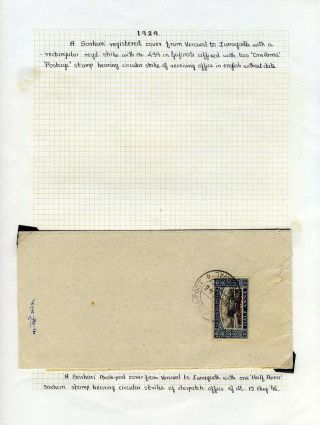 1929
A Sarkari registered cover from Veraval to Junagadh with a
rectangular regd. strike with no. 439 in Gujarati affixed with two 'One Anna'
'Postage' stamp bearing circular strike of receiving office in english without date.
A Sarkari Book-post cover from Veraval to Junagadh with one 'Half Anna'
sarkari stamp bearing circular strike of despatch office of dt. 13 Aug